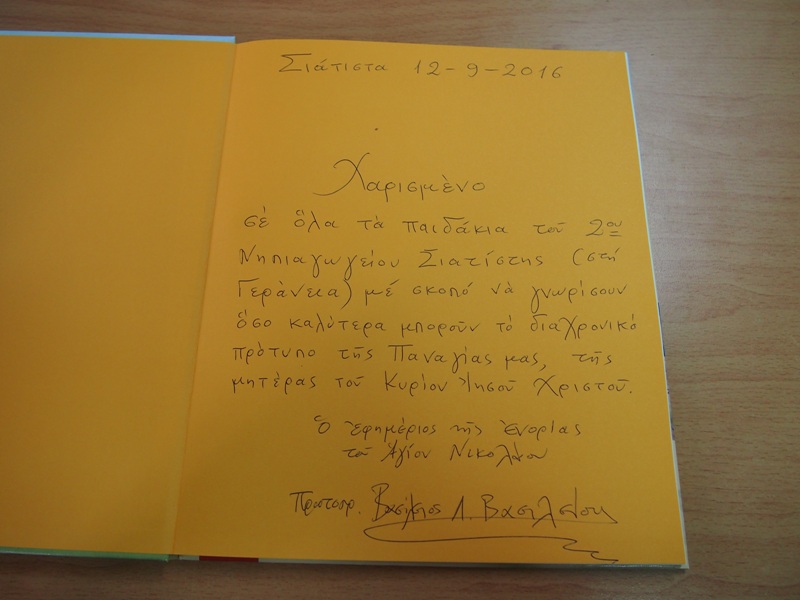 Σιάτιστα 12-9-2016
Χαρισμένο
σὲ ὅλα τὰ παιδάκια τοῦ 2ου
Νηπιαγωγείου Σιατίστης (στή
Γεράνεια) μέ σκοπό νὰ γνωρίσουν
ὅσο καλύτερα μποροῦν τὸ διαχρονικό
πρότυπο τῆς Παναγίας μας, τῆς
μητέρας τοῦ Κυρίου Ἰησοῦ Χριστοῦ.
Ὁ ἐφημέριος τῆς ἐνορίας
τοῦ Ἁγίου Νικολάου
Πρωτοπρ. Βασίλειος Λ. Βασιλείου